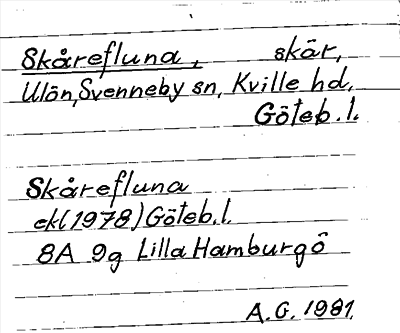 Skårefluna, skär,
Ulön, Svenneby sn, Kville hd,
Göteb. l.
Skårefluna
ek (1978) Göteb. l.
8A 9g Lilla Hamburgö
A.G. 1981.